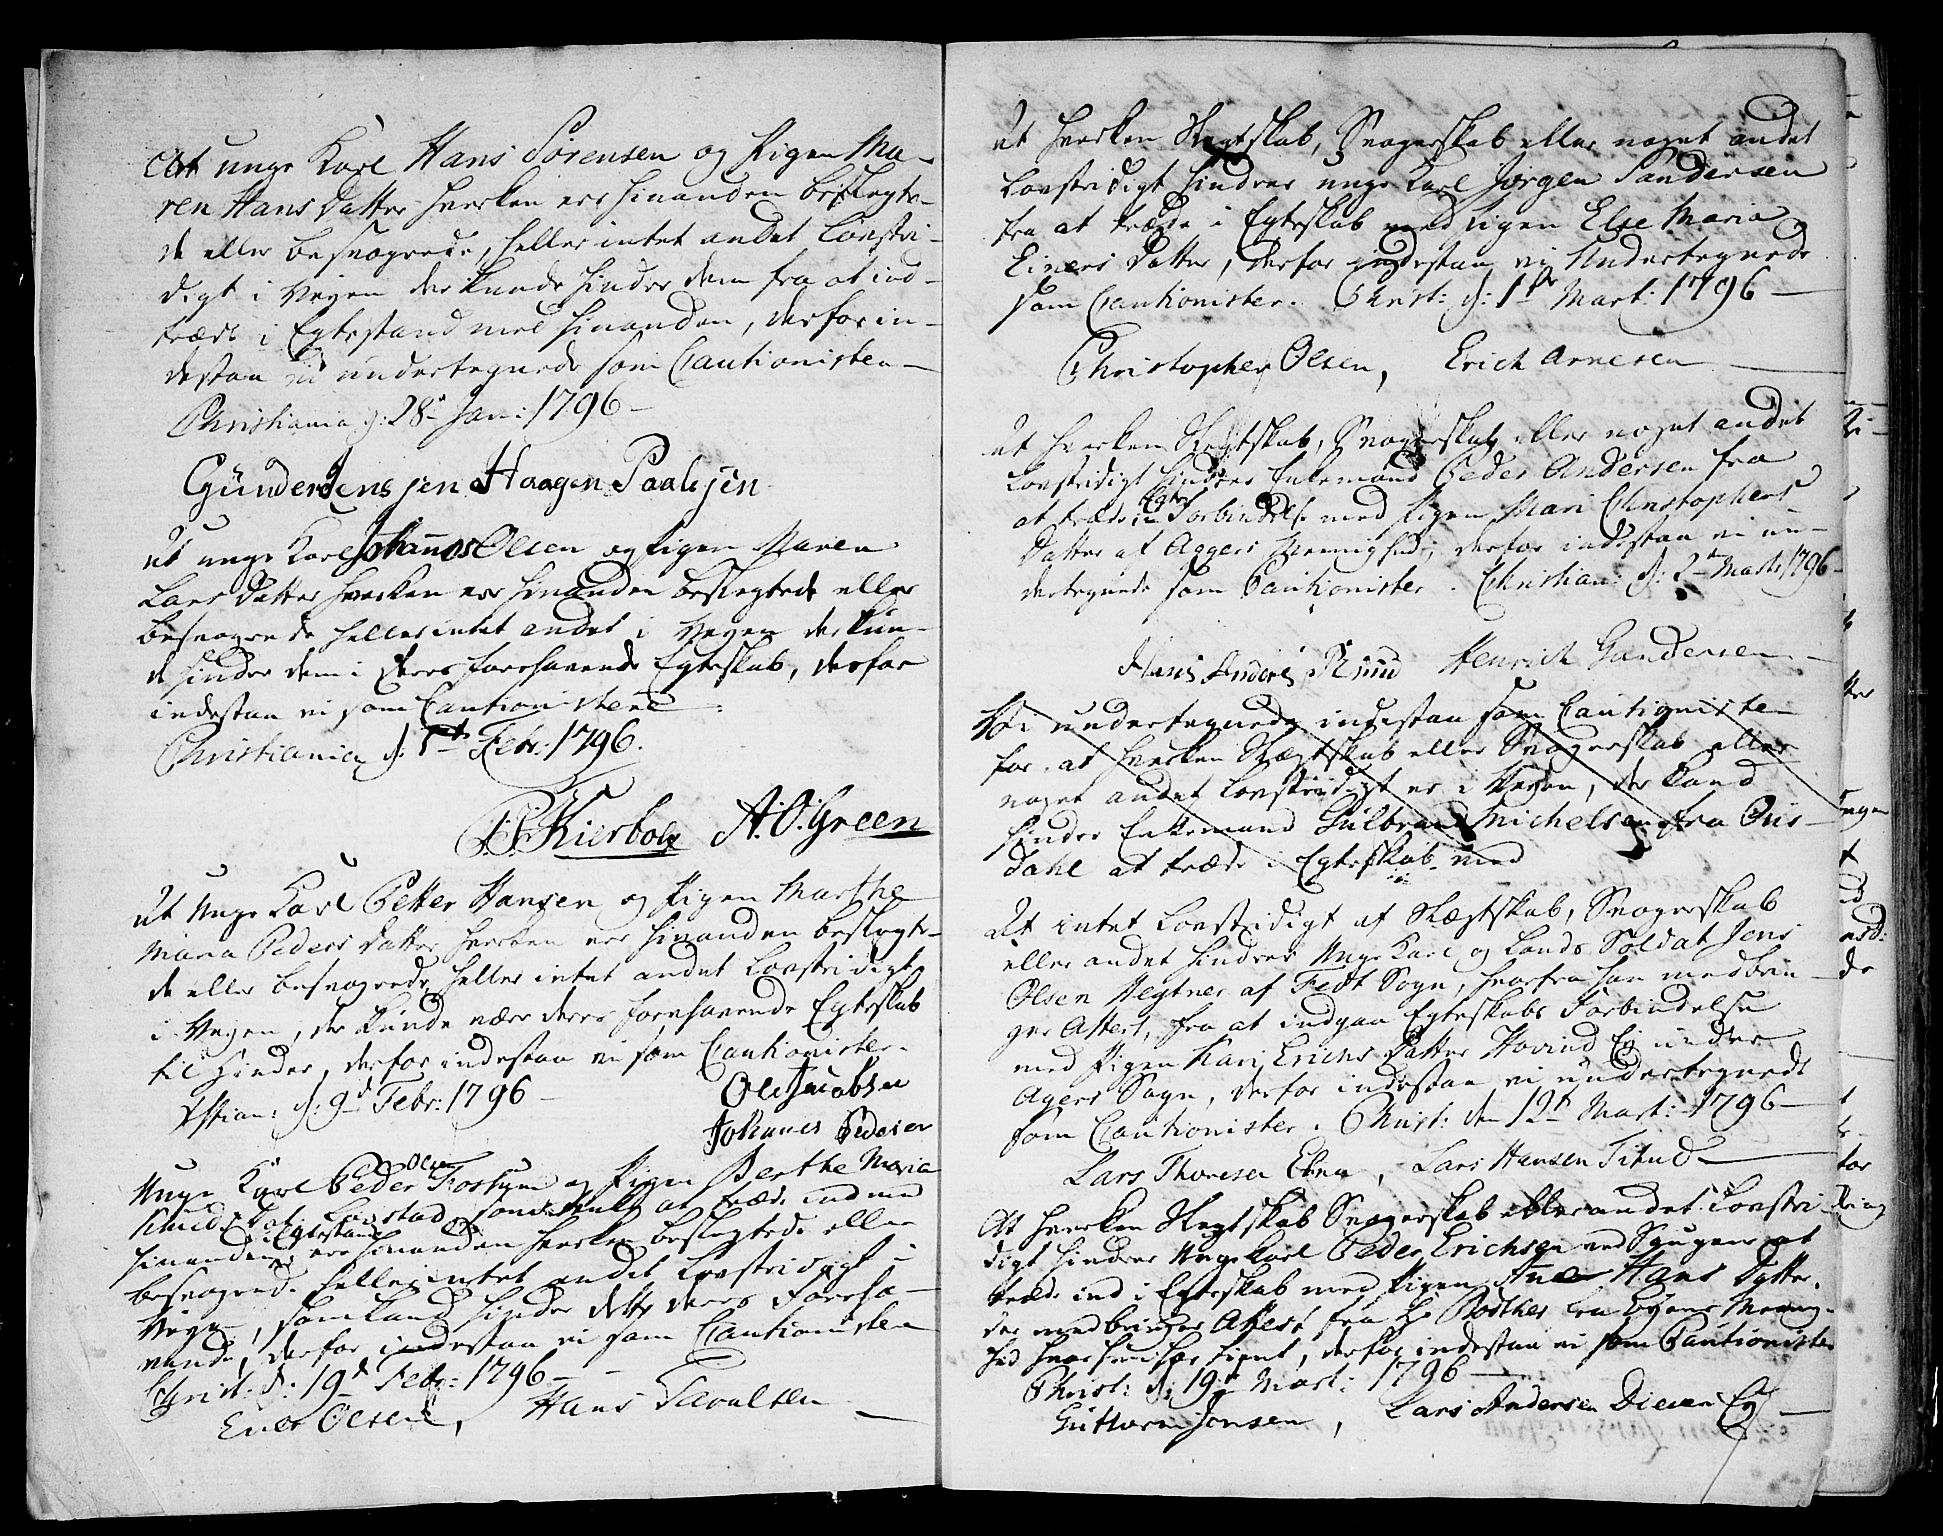 At unge Karl Hans Sörensen og Pigen Ma-
ren Hans Datter hverken ere hinanden beslegte-
de eller besvogrede, heller intet andet Lovstri-
digt i Vejen der kunde hindre dem fra at ind-
træde i Egtestand med hinanden, derfor in-
destaa vi undertegnede som Cautionister
Christiania d: 28de Jan: 1796
Gunder Jensjen Haagen Paalsjen
At unge Karl Johannes Olsen og Pigen Maren
Lars Datter hverken ere hinanden beslegtede eller
besvogrede heller intet andet i Vejen der kun-
de hindre dem i deres forehavende Egteskab, derfor
indestaa vi som Cautionistere
Christiania d. 1te Febr: 1796.
Kierbole A. O. Green
At unge Karl Petter Hansen og Pigen Marthe
Maria Peders Datter hverken ere hinanden beslegte-
de eller besvogrede heller intet andet Lovstridigt
i Vejen, der kunde være deres forehavende Egteskab
til Hinder, derfor indestaa vi som Cautionister.
Xstian: d: 9de Febr: 1796
Ole Jacobsen
Johanes Pedersen
Unge Karl Peder Olsen Fossum og Pigen Berthe Maria
Knuds Dat. Lovstad som vill at træde ind med
hinanden i Egtestand ere hinanden hverken beslegtede eller
besvogrede heller intet andet Lovstridigt i
Vejen, som kand hindre dette deres Foreha-
vende, derfor indestaa vi som Cautionister
Christ: d: 19de Febr: 1796
Ener Olsen, Hans
At hverken Slegtskab, Svogerskab eller noget andet
Lovstridigt hindrer unge Karl Jørgen Sandersen
fra at træde i Egteskab med Pigen Else Maria
Einers Datter, derfor indestaa vi Undertegnede
som Cautionister. Christ: d: 1te Mart: 1796
Christopher Olsen, Erich Arnesen
At hverken Slegtskab, Svogerskab eller noget andet
Lovstridigt hindrer Enkemand Peder Andersen fra
at træde i Egte Forbindelse med Pigen Mari Christophers
Datter af Aggers Menighed; derfor indestaa vi un-
dertegnede som Cautionister. Christian: d: 2de Marti 1796
Hans Anders Ruud Henrich Gundersen
Vi undertegnede indestaa som Cautionister
for, at hverken Slægtskab eller Svogerskab eller
noget andet Lovstridigt er i Vejen, der kand
hindre Enkemand Gulbrand Michelsen fra
dahl at træde i Egteskab med
At intet Lovstridigt af Slægtskab, Svogerskab
eller andet hindrer Unge Karl og Lands Soldat Jens
Olsen Hegtner af Fedt Sogn, hvorfra han medbrin-
ger Attest, fra at indgaa Egteskabs Forbindelse
med Pigen Kari Erichs Datter Hovind Ej under
Agers Sogn, derfor indestaa vi undertegnede
som Cautionister. Christ: den 12te Mart: 1796
Lars Thoresen Ebne, Lars Hansen Titud
At hverken Slegtskab Svogerskab eller andet Lovstri-
digt hindrer Unge Karl Peder Erichsen ved Saugene at
træde ind i Egteskab med Pigen Ane Hans Datter,
der medbringer Attest fra Hr fra Byens Menig-
hed hvor hun har tient, derfor indestaa vi som Cautionister
Christ: d: 19de Mart: 1796
Guttorm Jonsen, Lars Andersen Diesen Ej